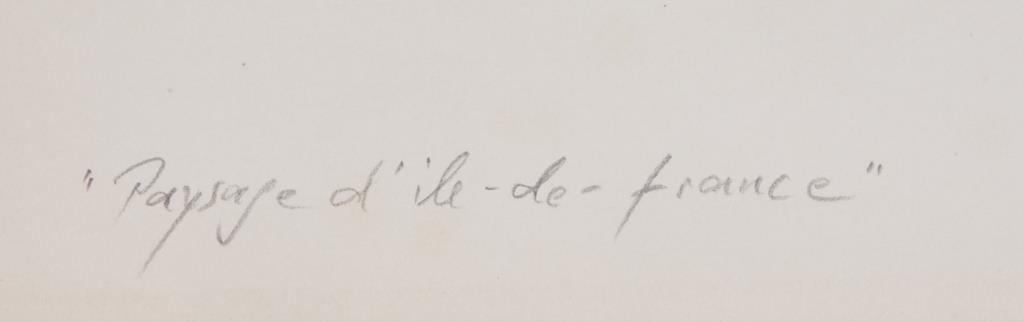 "Paysage d'ile-de-france"